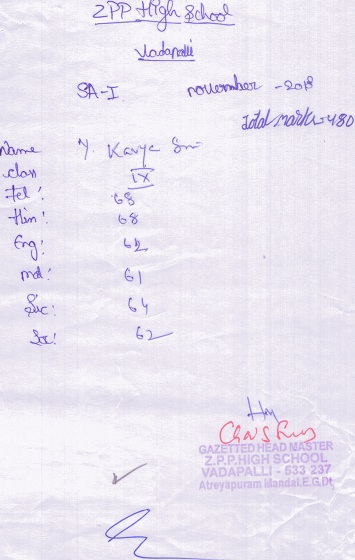 ZPP High School
Vadapalli
SA-I november - 2018
total marks - 480
Name Y. Kavya Sri
class IX
Tel: 68
Hin: 68
Eng: 62
mat: 61
Sic: 64
Soc: 62
GAZETTED HEAD MASTER
Z.P.P.HIGH SCHOOL
VADAPALLI - 533 237
Atreyapuram Mandal,E.G.Dt.